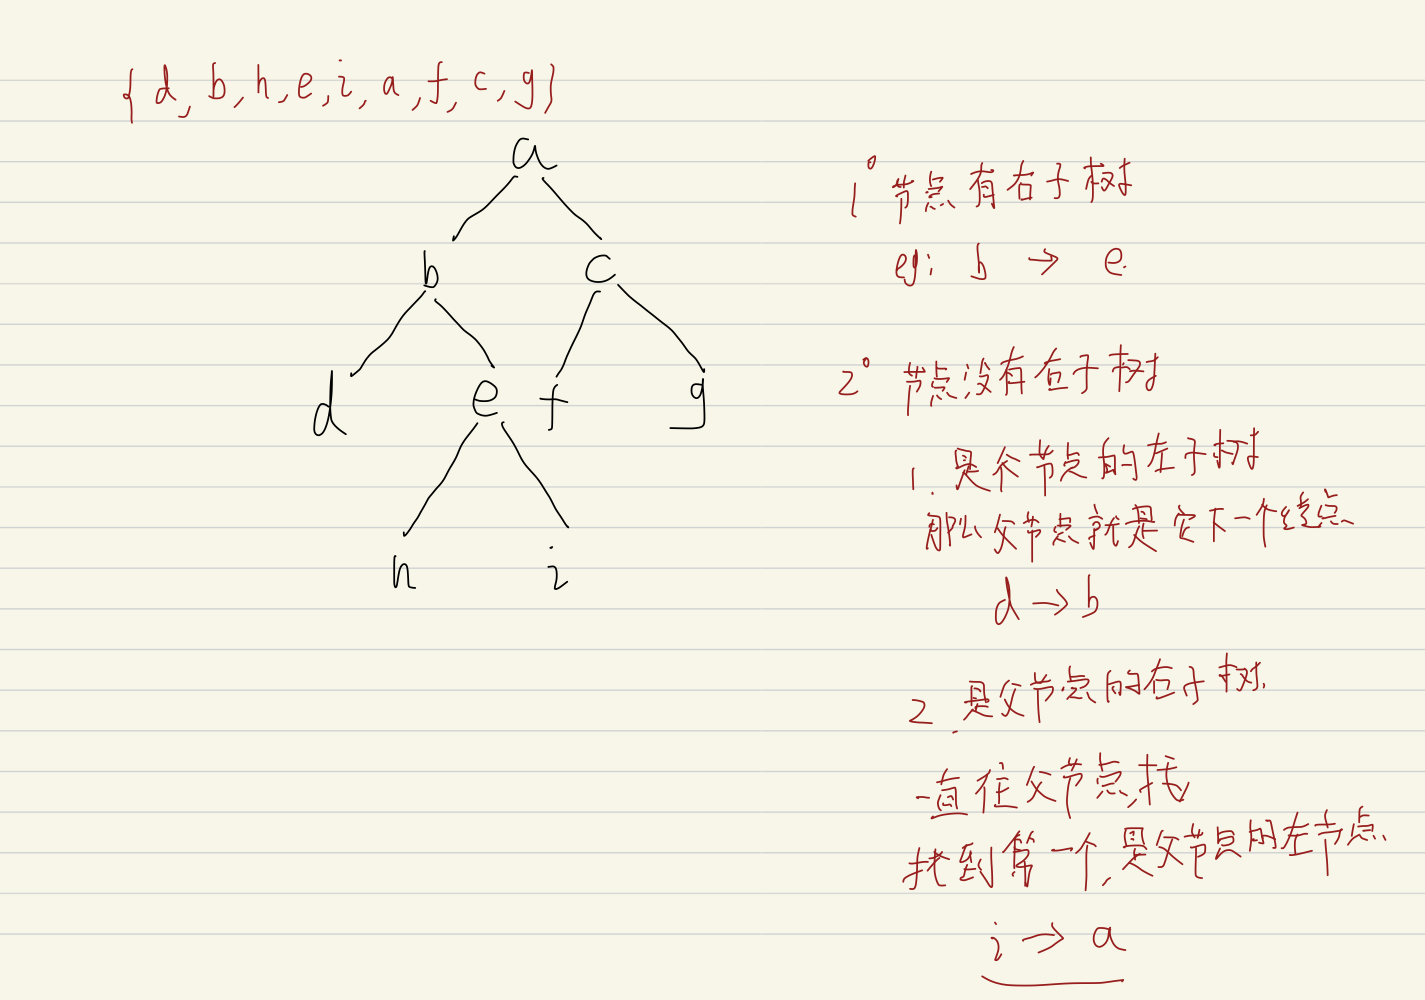 { d, b, h, e, i, a, f, c, g }
a
b c
d e f g
h i
1° 节点有右子树
eg: b → e.
2° 节点没有右子树
1. 是父节点的左子树
那么父节点就是它下一个结点
d → b
2. 是父节点的右子树.
一直往父节点,找
找到第一个,是父节点的左节点.
i → a